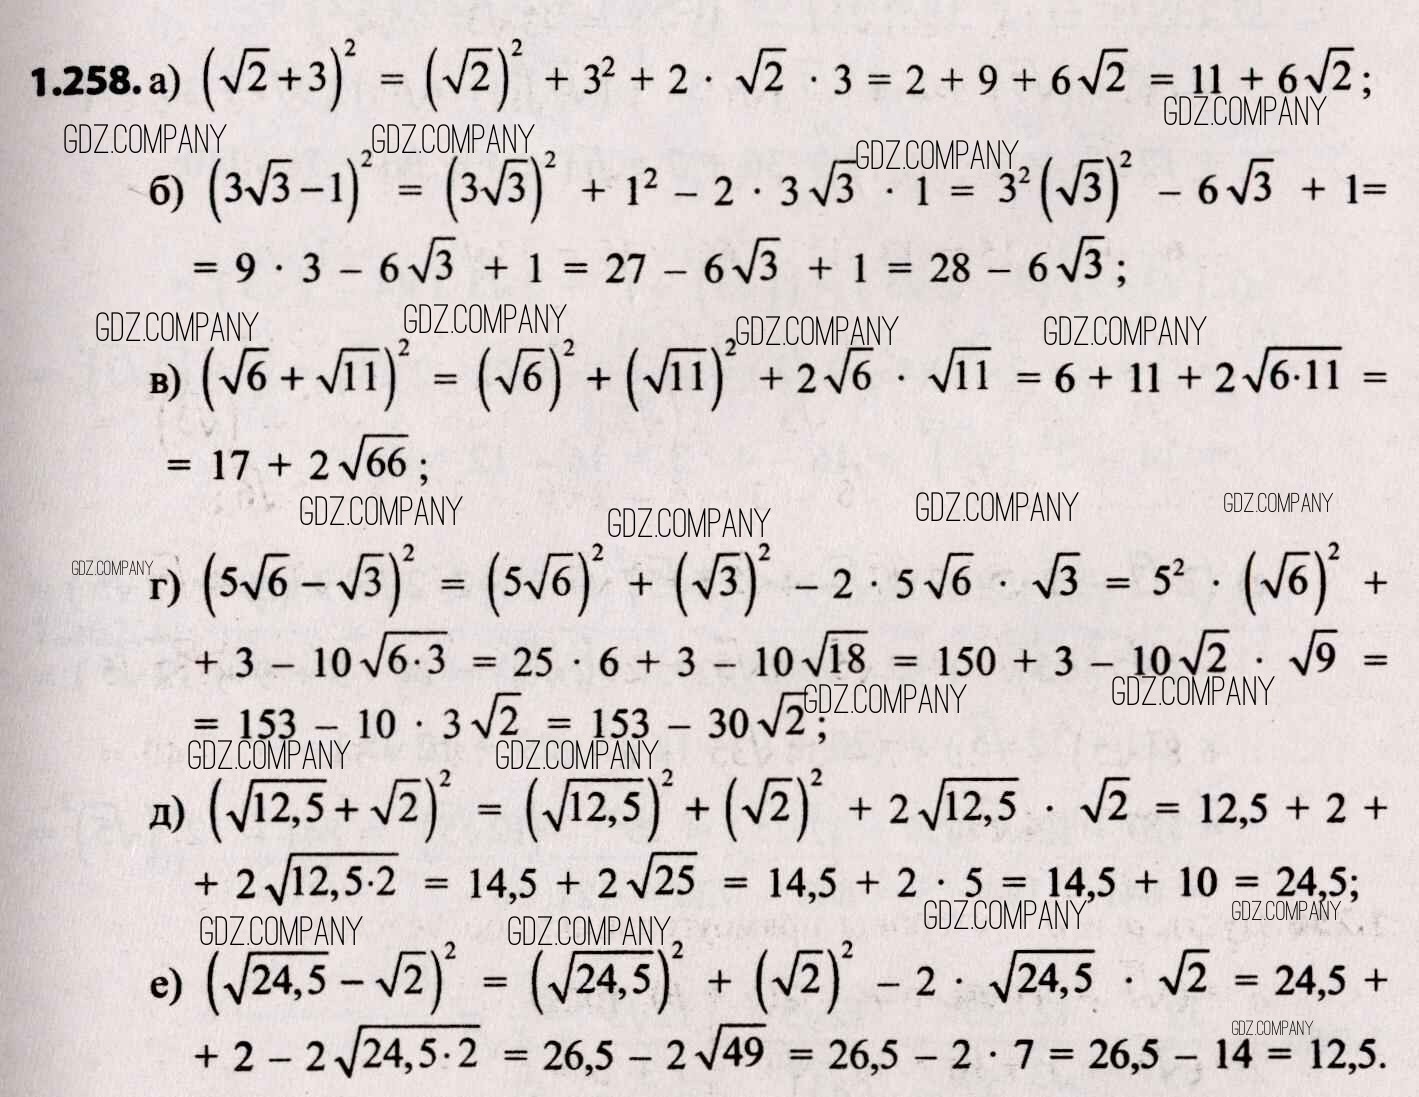 1.258. а) (√2+3)² = (√2)² + 3² + 2 · √2 · 3 = 2 + 9 + 6√2 = 11 + 6√2;
GDZ.COMPANY GDZ.COMPANY GDZ.COMPANY GDZ.COMPANY
б) (3√3−1)² = (3√3)² + 1² − 2 · 3√3 · 1 = 3²(√3)² − 6√3 + 1=
= 9 · 3 − 6√3 + 1 = 27 − 6√3 + 1 = 28 − 6√3;
GDZ.COMPANY GDZ.COMPANY GDZ.COMPANY GDZ.COMPANY
в) (√6 + √11)² = (√6)² + (√11)² + 2√6 · √11 = 6 + 11 + 2√(6·11) =
= 17 + 2√66;
GDZ.COMPANY GDZ.COMPANY GDZ.COMPANY GDZ.COMPANY
GDZ.COMPANY
г) (5√6 − √3)² = (5√6)² + (√3)² − 2 · 5√6 · √3 = 5² · (√6)² +
+ 3 − 10√(6·3) = 25 · 6 + 3 − 10√18 = 150 + 3 − 10√2 · √9 =
GDZ.COMPANY GDZ.COMPANY
= 153 − 10 · 3√2 = 153 − 30√2;
GDZ.COMPANY GDZ.COMPANY
д) (√12,5 + √2)² = (√12,5)² + (√2)² + 2√12,5 · √2 = 12,5 + 2 +
+ 2√(12,5·2) = 14,5 + 2√25 = 14,5 + 2 · 5 = 14,5 + 10 = 24,5;
GDZ.COMPANY GDZ.COMPANY GDZ.COMPANY GDZ.COMPANY
е) (√24,5 − √2)² = (√24,5)² + (√2)² − 2 · √24,5 · √2 = 24,5 +
GDZ.COMPANY
+ 2 − 2√(24,5·2) = 26,5 − 2√49 = 26,5 − 2 · 7 = 26,5 − 14 = 12,5.